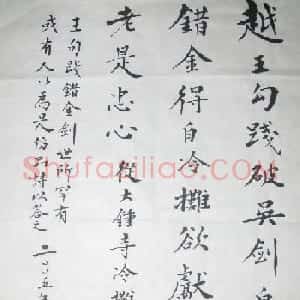 越王勾践破吴剑
错金得自冷摊欲献
老是忠心从大钟寺冷摊
王勾践错金剑世所罕有
或有人以为是仿
二〇〇五年
Shufaziliao.COM